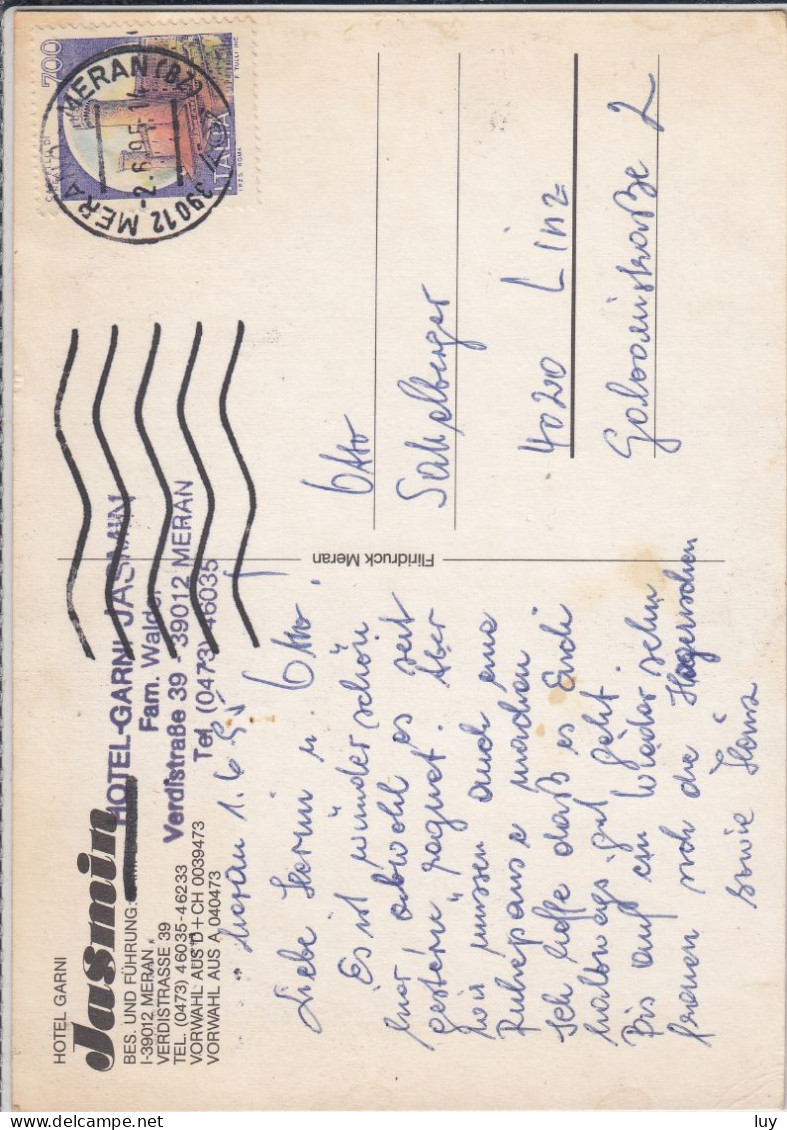 HOTEL GARNI
Jasmin
BES. UND FÜHRUNG:
I-39012 MERAN
VERDISTRASSE 39
TEL. (0473) 46035-46233
VORWAHL AUS D+CH 0039473
VORWAHL AUS A 040473
HOTEL-GARNI JASMIN
Fam. Walder
Verdistraße 39 - 39012 MERAN
Tel. (0473) 46035
Meran 1.6.95
Liebe Karin u Otto!
Es ist wunderschön
hier obwohl es seit
gestern regnet. Aber
wir müssen auch eine
Ruhepause machen
Ich hoffe daß es Euch
halbwegs gut geht
Bis auf ein Wiedersehn
freuen sich die
sowie Heinz
Flridruck Meran
700
ITALIA
I.P.Z.S. ROMA
39012 MERANO
MERAN (BZ)
-2.6.95
Otto
4020 Linz
2
luy